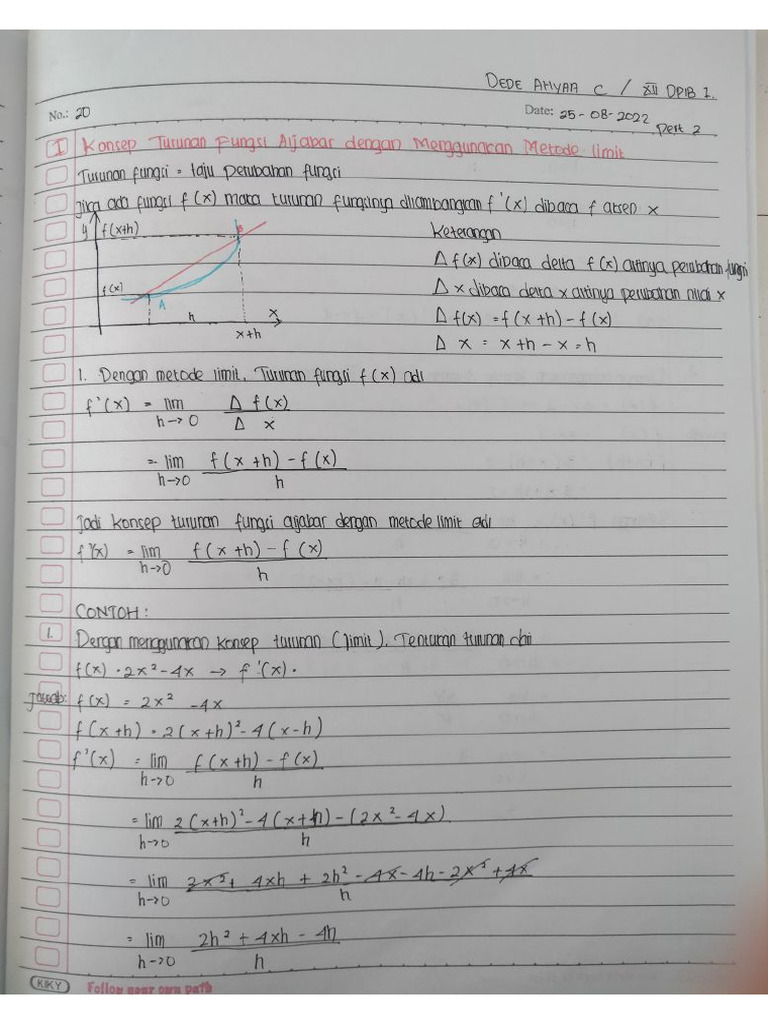 DEDE AHYAR C / XII DPIB 1.
No.: 20 Date: 25-08-2022
Pert 2
I Konsep Turunan Fungsi Aljabar dengan Menggunakan Metode limit
Turunan fungsi = laju perubahan fungsi
Jika ada fungsi f(x) maka turunan fungsinya dilambangkan f'(x) dibaca f aksen x
y f(x+h) B
f(x)
A
h x
x+h
Keterangan
Δ f(x) dibaca delta f(x) artinya perubahan fungsi
Δ x dibaca delta x artinya perubahan nilai x
Δ f(x) = f(x+h) - f(x)
Δ x = x+h-x=h
1. Dengan metode limit, Turunan fungsi f(x) adl
f'(x) = lim Δ f(x)
h→0 Δ x
= lim f(x+h) - f(x)
h→0 h
Jadi konsep turunan fungsi aljabar dengan metode limit adl
f'(x) = lim f(x+h) - f(x)
h→0 h
CONTOH:
1. Dengan menggunakan konsep turunan (limit). Tentukan turunan dari
f(x) = 2x² - 4x → f'(x).
Jawab: f(x) = 2x² - 4x
f(x+h) = 2(x+h)² - 4(x-h)
f'(x) = lim f(x+h) - f(x)
h→0 h
= lim 2(x+h)² - 4(x+h) - (2x² - 4x)
h→0 h
= lim 2x² + 4xh + 2h² - 4x - 4h - 2x² + 4x
h→0 h
= lim 2h² + 4xh - 4h
h→0 h
KIKY Follow your own path